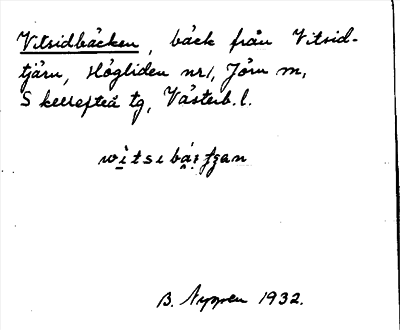 Vitsidbäcken, bäck från Vitsid-
tjärn, Högliden nr 1, Jörn sn,
Skellefteå tg, Västerb. l.
B. Nygren 1932.